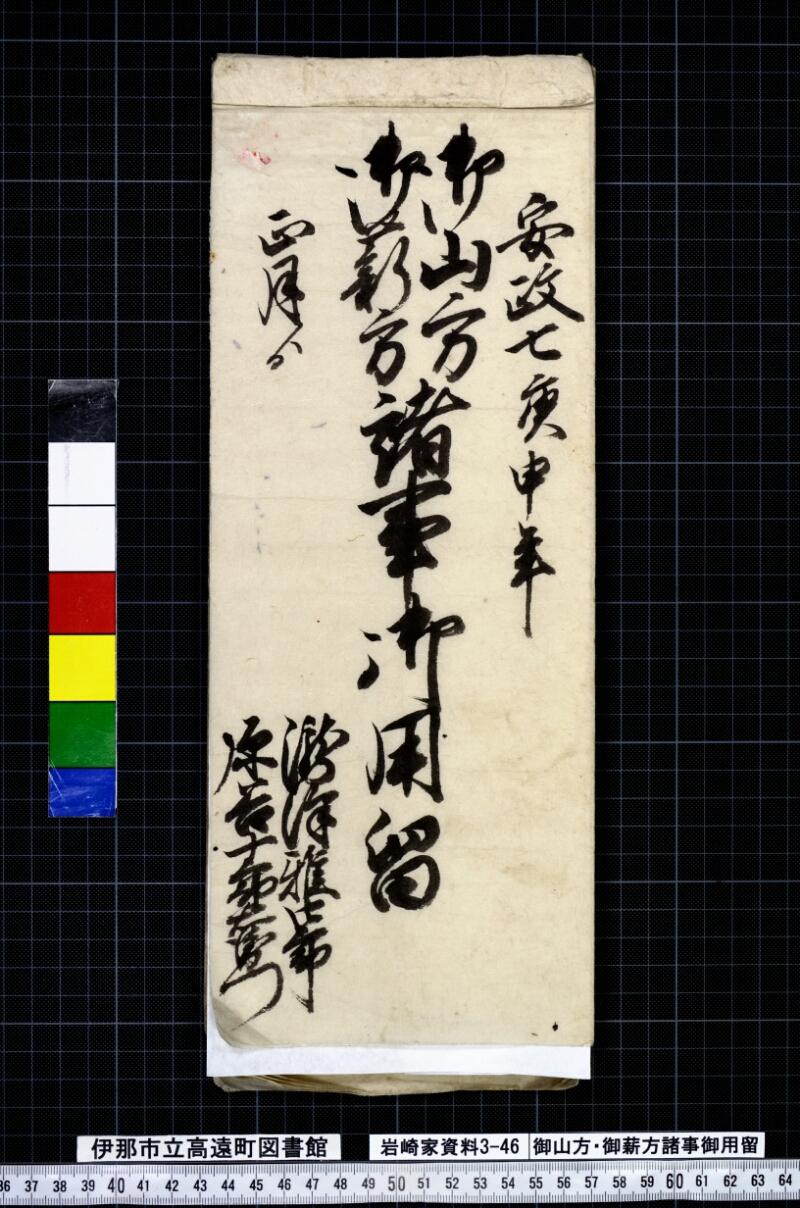 安政七庚申年
御山方
御薪方
諸事御用留
正月ゟ
瀧澤雅七郎
伊那市立高遠町図書館
岩崎家資料3-46
御山方・御薪方諸事御用留
36 37 38 39 40 41 42 43 44 45 46 47 48 49 50 51 52 53 54 55 56 57 58 59 60 61 62 63 64